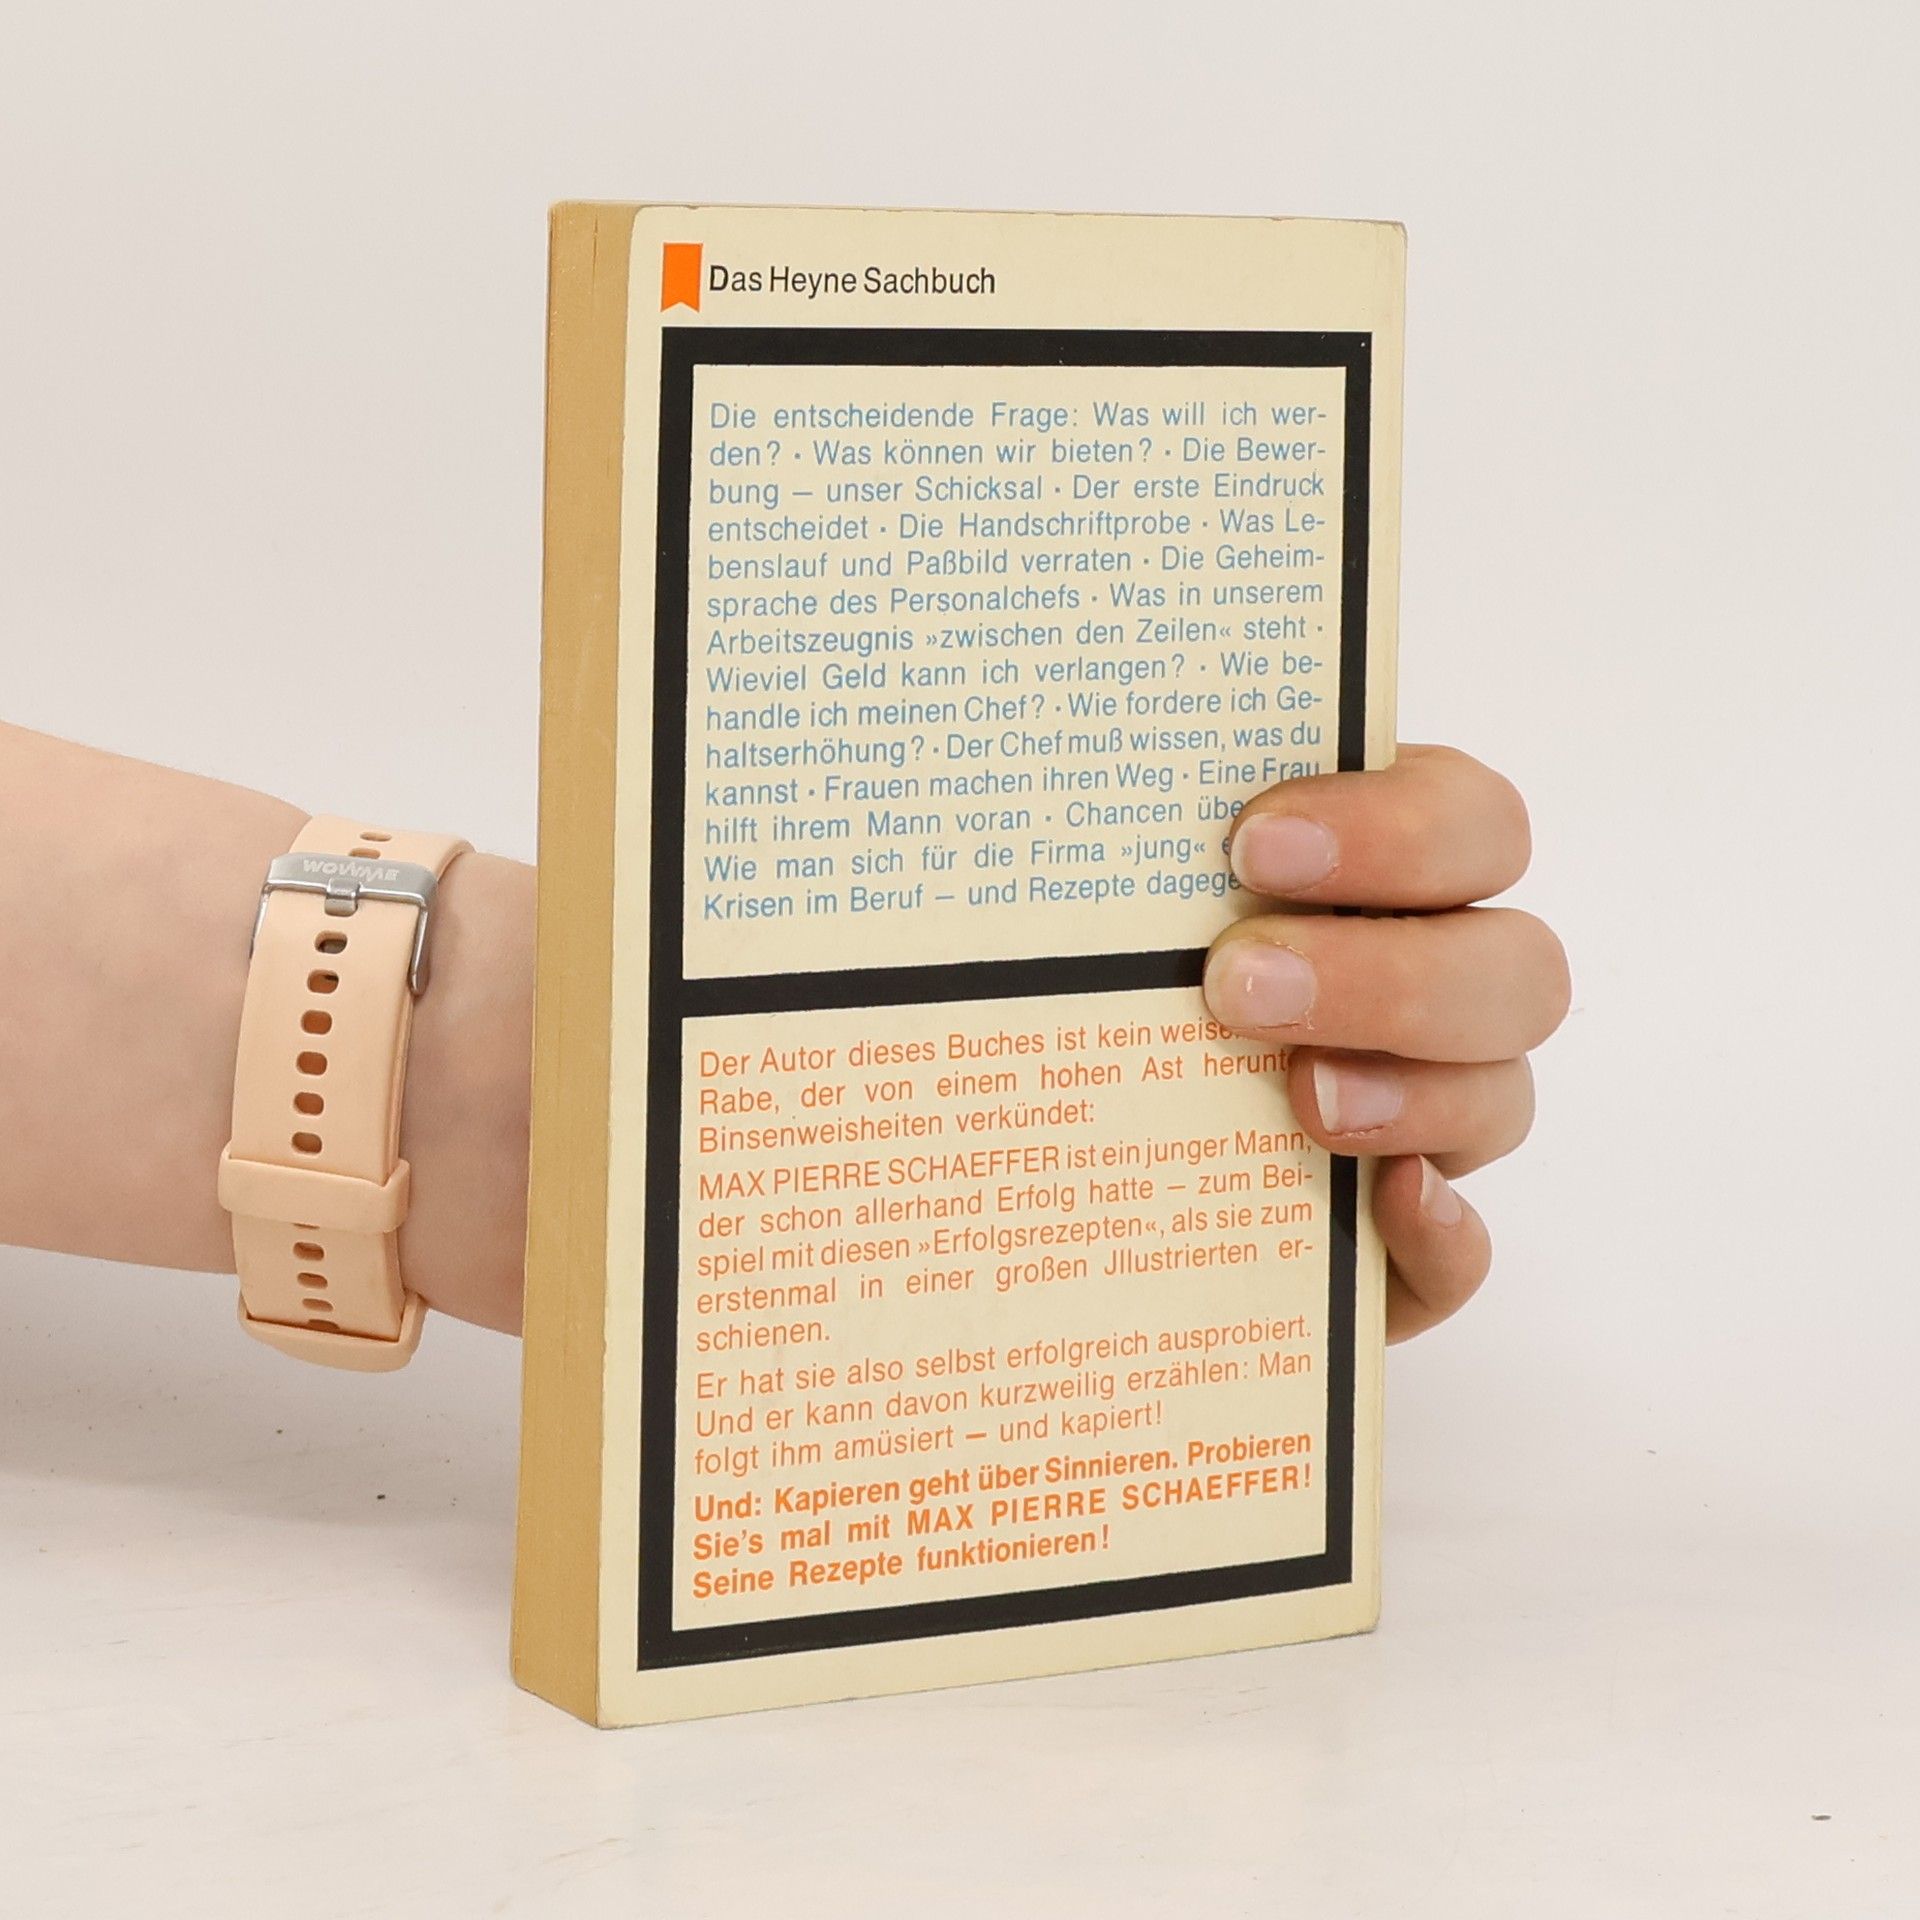 Das Heyne Sachbuch
Die entscheidende Frage: Was will ich wer-
den? · Was können wir bieten? · Die Bewer-
bung – unser Schicksal · Der erste Eindruck
entscheidet · Die Handschriftprobe · Was Le-
benslauf und Paßbild verraten · Die Geheim-
sprache des Personalchefs · Was in unserem
Arbeitszeugnis »zwischen den Zeilen« steht ·
Wieviel Geld kann ich verlangen? · Wie be-
handle ich meinen Chef? · Wie fordere ich Ge-
haltserhöhung? · Der Chef muß wissen, was du
kannst · Frauen machen ihren Weg · Eine Frau
hilft ihrem Mann voran · Chancen
Wie man sich für die Firma »jung«
Krisen im Beruf – und Rezepte
Der Autor dieses Buches ist kein
Rabe, der von einem hohen Ast
Binsenweisheiten verkündet:
MAX PIERRE SCHAEFFER ist ein junger Mann,
der schon allerhand Erfolg hatte – zum Bei-
spiel mit diesen »Erfolgsrezepten«, als sie zum
erstenmal in einer großen Jllustrierten er-
schienen.
Er hat sie also selbst erfolgreich ausprobiert.
Und er kann davon kurzweilig erzählen: Man
folgt ihm amüsiert – und kapiert!
Und: Kapieren geht über Sinnieren. Probieren
Sie's mal mit MAX PIERRE SCHAEFFER!
Seine Rezepte funktionieren!
WOWME